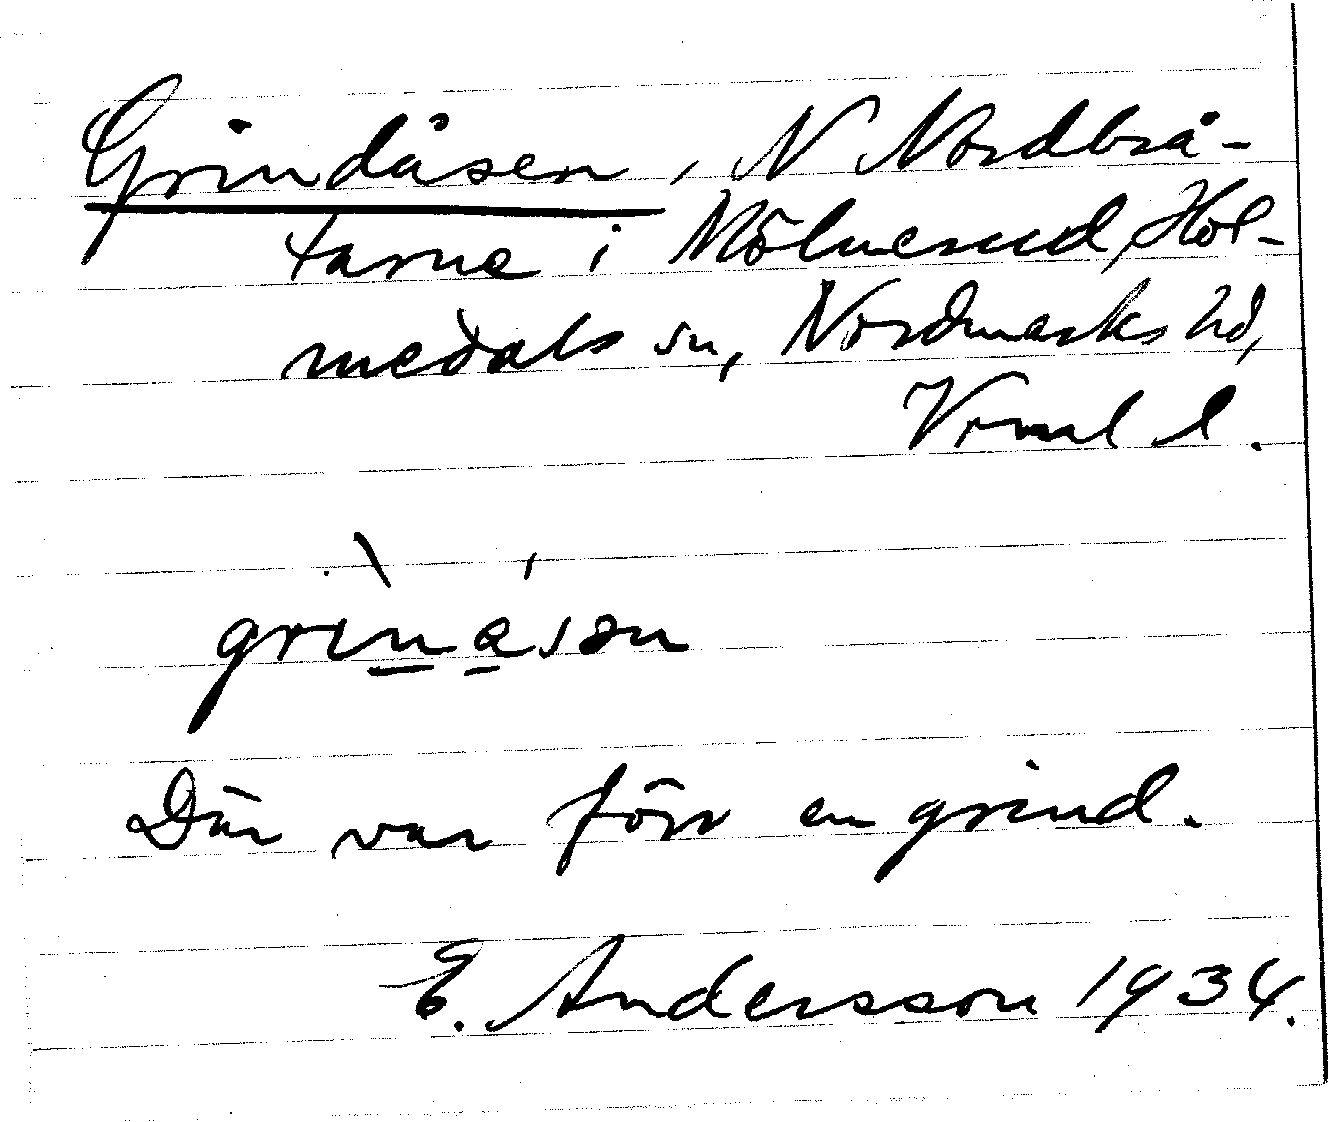 Grindåsen, N Nordbrå-
tarna i Mölnerud, Hol-
medals sn, Nordmarks hd,
Vrml l.
grinåsən
Där var förr en grind.
E. Andersson 1934.